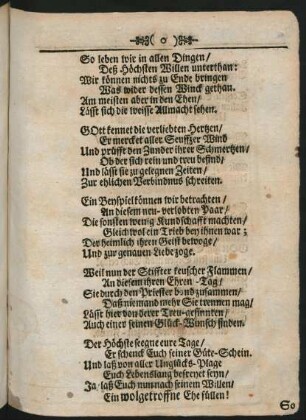 ( o )
So leben wir in allen Dingen/
Deß Höchsten Willen unterthan:
Wir können nichts zu Ende bringen
Was wider dessen Winck gethan.
Am meisten aber in den Ehen/
Lässt sich die weisse Allmacht sehen.
GOtt kennet die verliebten Hertzen/
Er mercket aller Seuffzer Wind
Und prüfft den Zunder ihrer Schmertzen/
Ob der sich rein und treu befind/
Und lässt sie zu gelegnen Zeiten/
Zur ehlichen Verbindnuß schreiten.
Ein Beyspiel können wir betrachten/
An diesem neu-verlobten Paar/
Die sonsten wenig Kundschafft machten/
Gleichwol ein Trieb bey ihnen war;
Der heimlich ihren Geist bewoge/
Und zur genauen Liebe zoge.
Weil nun der Stiffter keuscher Flammen/
An diesem ihren Ehren-Tag/
Sie durch den Priester band zusammen/
Daß niemand mehr Sie trennen mag/
Lässt hier von derer Treu-gesinnten/
Auch einer seinen Glück-Wunsch finden.
Der Höchste segne eure Tage/
Er schenck Euch seiner Güte-Schein.
Und laß von aller Unglücks-Plage
Euch Lebenslang befreyet seyn/
Ja/ laß Euch nun nach seinem Willen/
Ein wolgetroffne Ehe füllen!
So